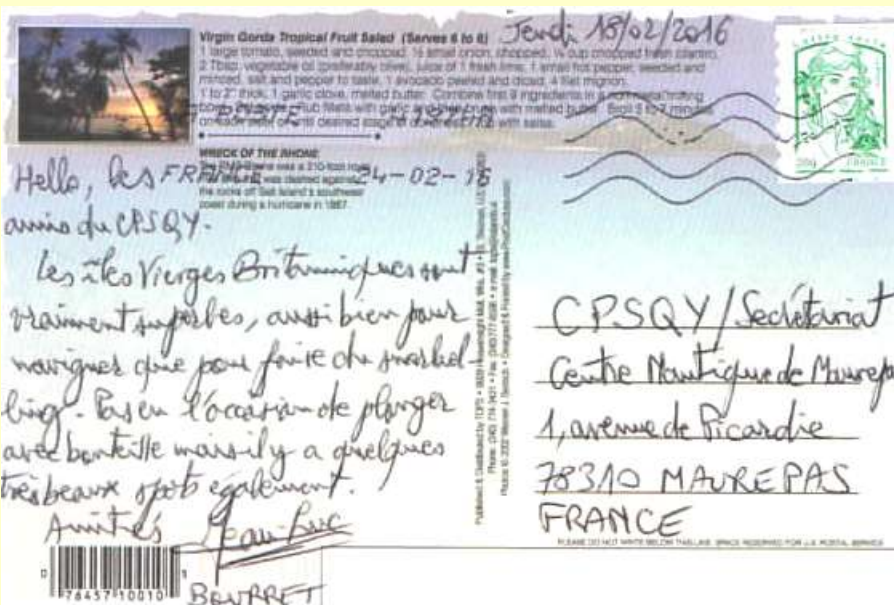 Virgin Gorda Tropical Fruit Salad (Serves 6 to 8)
Jeudi 18/02/2016
1 large tomato, seeded and chopped, ½ small onion, chopped, ¼ cup chopped fresh cilantro,
2 Tbsp. vegetable oil (preferably olive), juice of 1 fresh lime, 1 small hot pepper, seeded and
minced, salt and pepper to taste, 1 avocado peeled and diced, 4 filet mignon,
1 to 2" thick, 1 garlic clove, melted butter. Combine first 9 ingredients in a
Rub fillets with garlic and with melted butter. Broil 5 to 7 minutes
on each side or until desired stage with salsa.
FRANCE
WRECK OF THE RHONE
was a 310-foot
was dashed against
the rocks off Salt Island's southwest
coast during a hurricane in 1867.
FRANCE
24-02-16
Hello, les
amis du CPSQY.
Les îles Vierges Britanniques sont
vraiment superbes, aussi bien pour
naviguer que pour faire du snorkel-
ling. Pas eu l'occasion de plonger
avec bouteille mais il y a quelques
très beaux spots également.
Amitiés Jean-Luc
BOURRET
0 76457 10010
CPSQY/Secrétariat
Centre Nautique de Maurepa
1, avenue de Picardie
78310 MAUREPAS
FRANCE
PLEASE DO NOT WRITE BELOW THIS LINE. SPACE RESERVED FOR U.S. POSTAL SERVICE